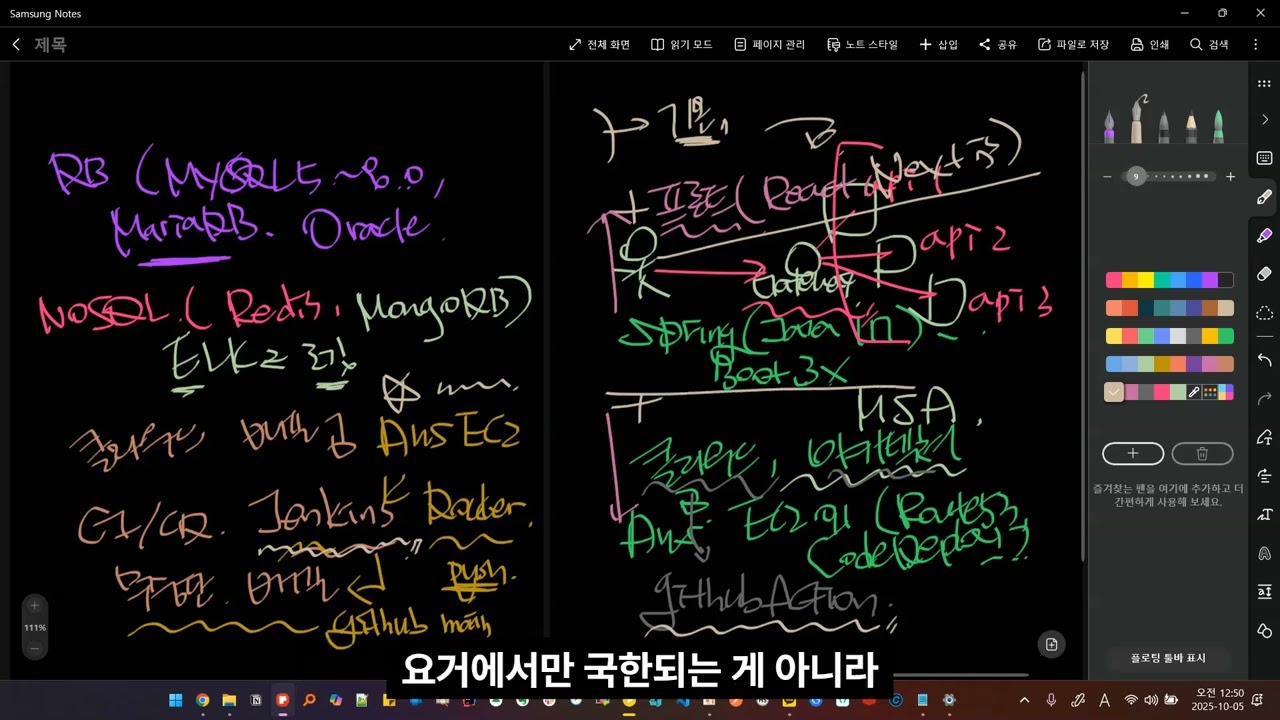 Samsung Notes
제목
전체 화면 읽기 모드 페이지 관리 노트 스타일 삽입 공유 파일로 저장 인쇄 검색
RB (MySQL 5 ~ 8.0,
MariaRB. Oracle
NoSQL. ( Redis, MongoRB)
ELK
클라우드 배포 AWS EC2
CI/CR. Jenkins Rocker.
무중단 배포 push.
github main
→ 기본,
프론트 (React Next js)
Gateway
api 2
api 3
Spring (Java 17)
Boot 3x
MSA
클라우드, 아키텍처
AWS EC2 (Route53
CodeDeploy)
githubAction.
9
즐겨찾는 펜을 여기에 추가하고 더
간편하게 사용해 보세요.
플로팅 툴바 표시
111%
요거에서만 국한되는 게 아니라
오전 12:50
2025-10-05